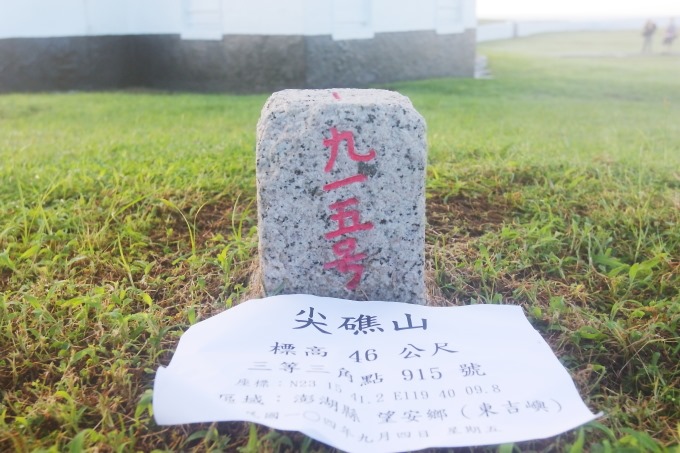 九一五号
尖礁山
標高 46 公尺
三等三角點 915 號
座標：N23 15 41.2 E119 40 09.8
區域：澎湖縣 望安鄉（東吉嶼）
民國一〇四年九月四日 星期五